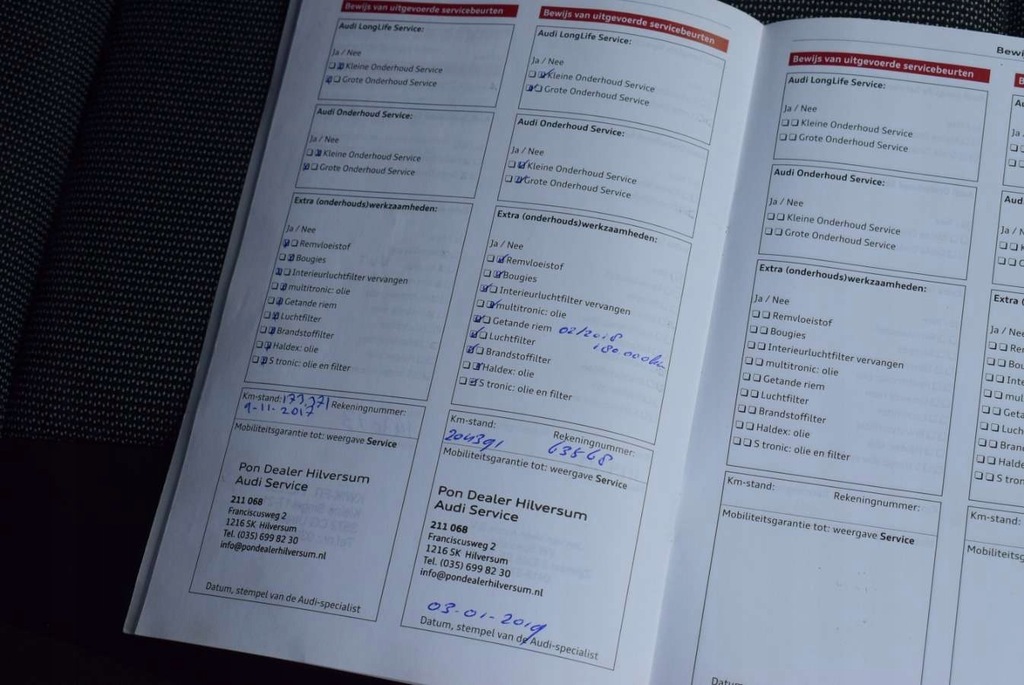 Bewijs van uitgevoerde servicebeurten
Audi LongLife Service:
Ja / Nee
Kleine Onderhoud Service
Grote Onderhoud Service
Audi Onderhoud Service:
Ja / Nee
Kleine Onderhoud Service
Grote Onderhoud Service
Extra (onderhouds)werkzaamheden:
Ja / Nee
Remvloeistof
Bougies
Interieurluchtfilter vervangen
multitronic: olie
Getande riem
Luchtfilter
Brandstoffilter
Haldex: olie
S tronic: olie en filter
Km-stand: 173.371 Rekeningnummer:
9-11-2017
Mobiliteitsgarantie tot: weergave Service
Pon Dealer Hilversum
Audi Service
211 068
Franciscusweg 2
1216 SK Hilversum
Tel. (035) 699 82 30
info@pondealerhilversum.nl
Datum, stempel van de Audi-specialist
Bewijs van uitgevoerde servicebeurten
Audi LongLife Service:
Ja / Nee
Kleine Onderhoud Service
Grote Onderhoud Service
Audi Onderhoud Service:
Ja / Nee
Kleine Onderhoud Service
Grote Onderhoud Service
Extra (onderhouds)werkzaamheden:
Ja / Nee
Remvloeistof
Bougies
Interieurluchtfilter vervangen
multitronic: olie
Getande riem 02/2018
Luchtfilter 180.000km
Brandstoffilter
Haldex: olie
S tronic: olie en filter
Km-stand: Rekeningnummer:
204391 63568
Mobiliteitsgarantie tot: weergave Service
Pon Dealer Hilversum
Audi Service
211 068
Franciscusweg 2
1216 SK Hilversum
Tel. (035) 699 82 30
info@pondealerhilversum.nl
03-01-2019
Datum, stempel van de Audi-specialist
Bewijs van uitgevoerde servicebeurten
Audi LongLife Service:
Ja / Nee
Kleine Onderhoud Service
Grote Onderhoud Service
Audi Onderhoud Service:
Ja / Nee
Kleine Onderhoud Service
Grote Onderhoud Service
Extra (onderhouds)werkzaamheden:
Ja / Nee
Remvloeistof
Bougies
Interieurluchtfilter vervangen
multitronic: olie
Getande riem
Luchtfilter
Brandstoffilter
Haldex: olie
S tronic: olie en filter
Km-stand: Rekeningnummer:
Mobiliteitsgarantie tot: weergave Service
Ja / Nee
Km-stand: